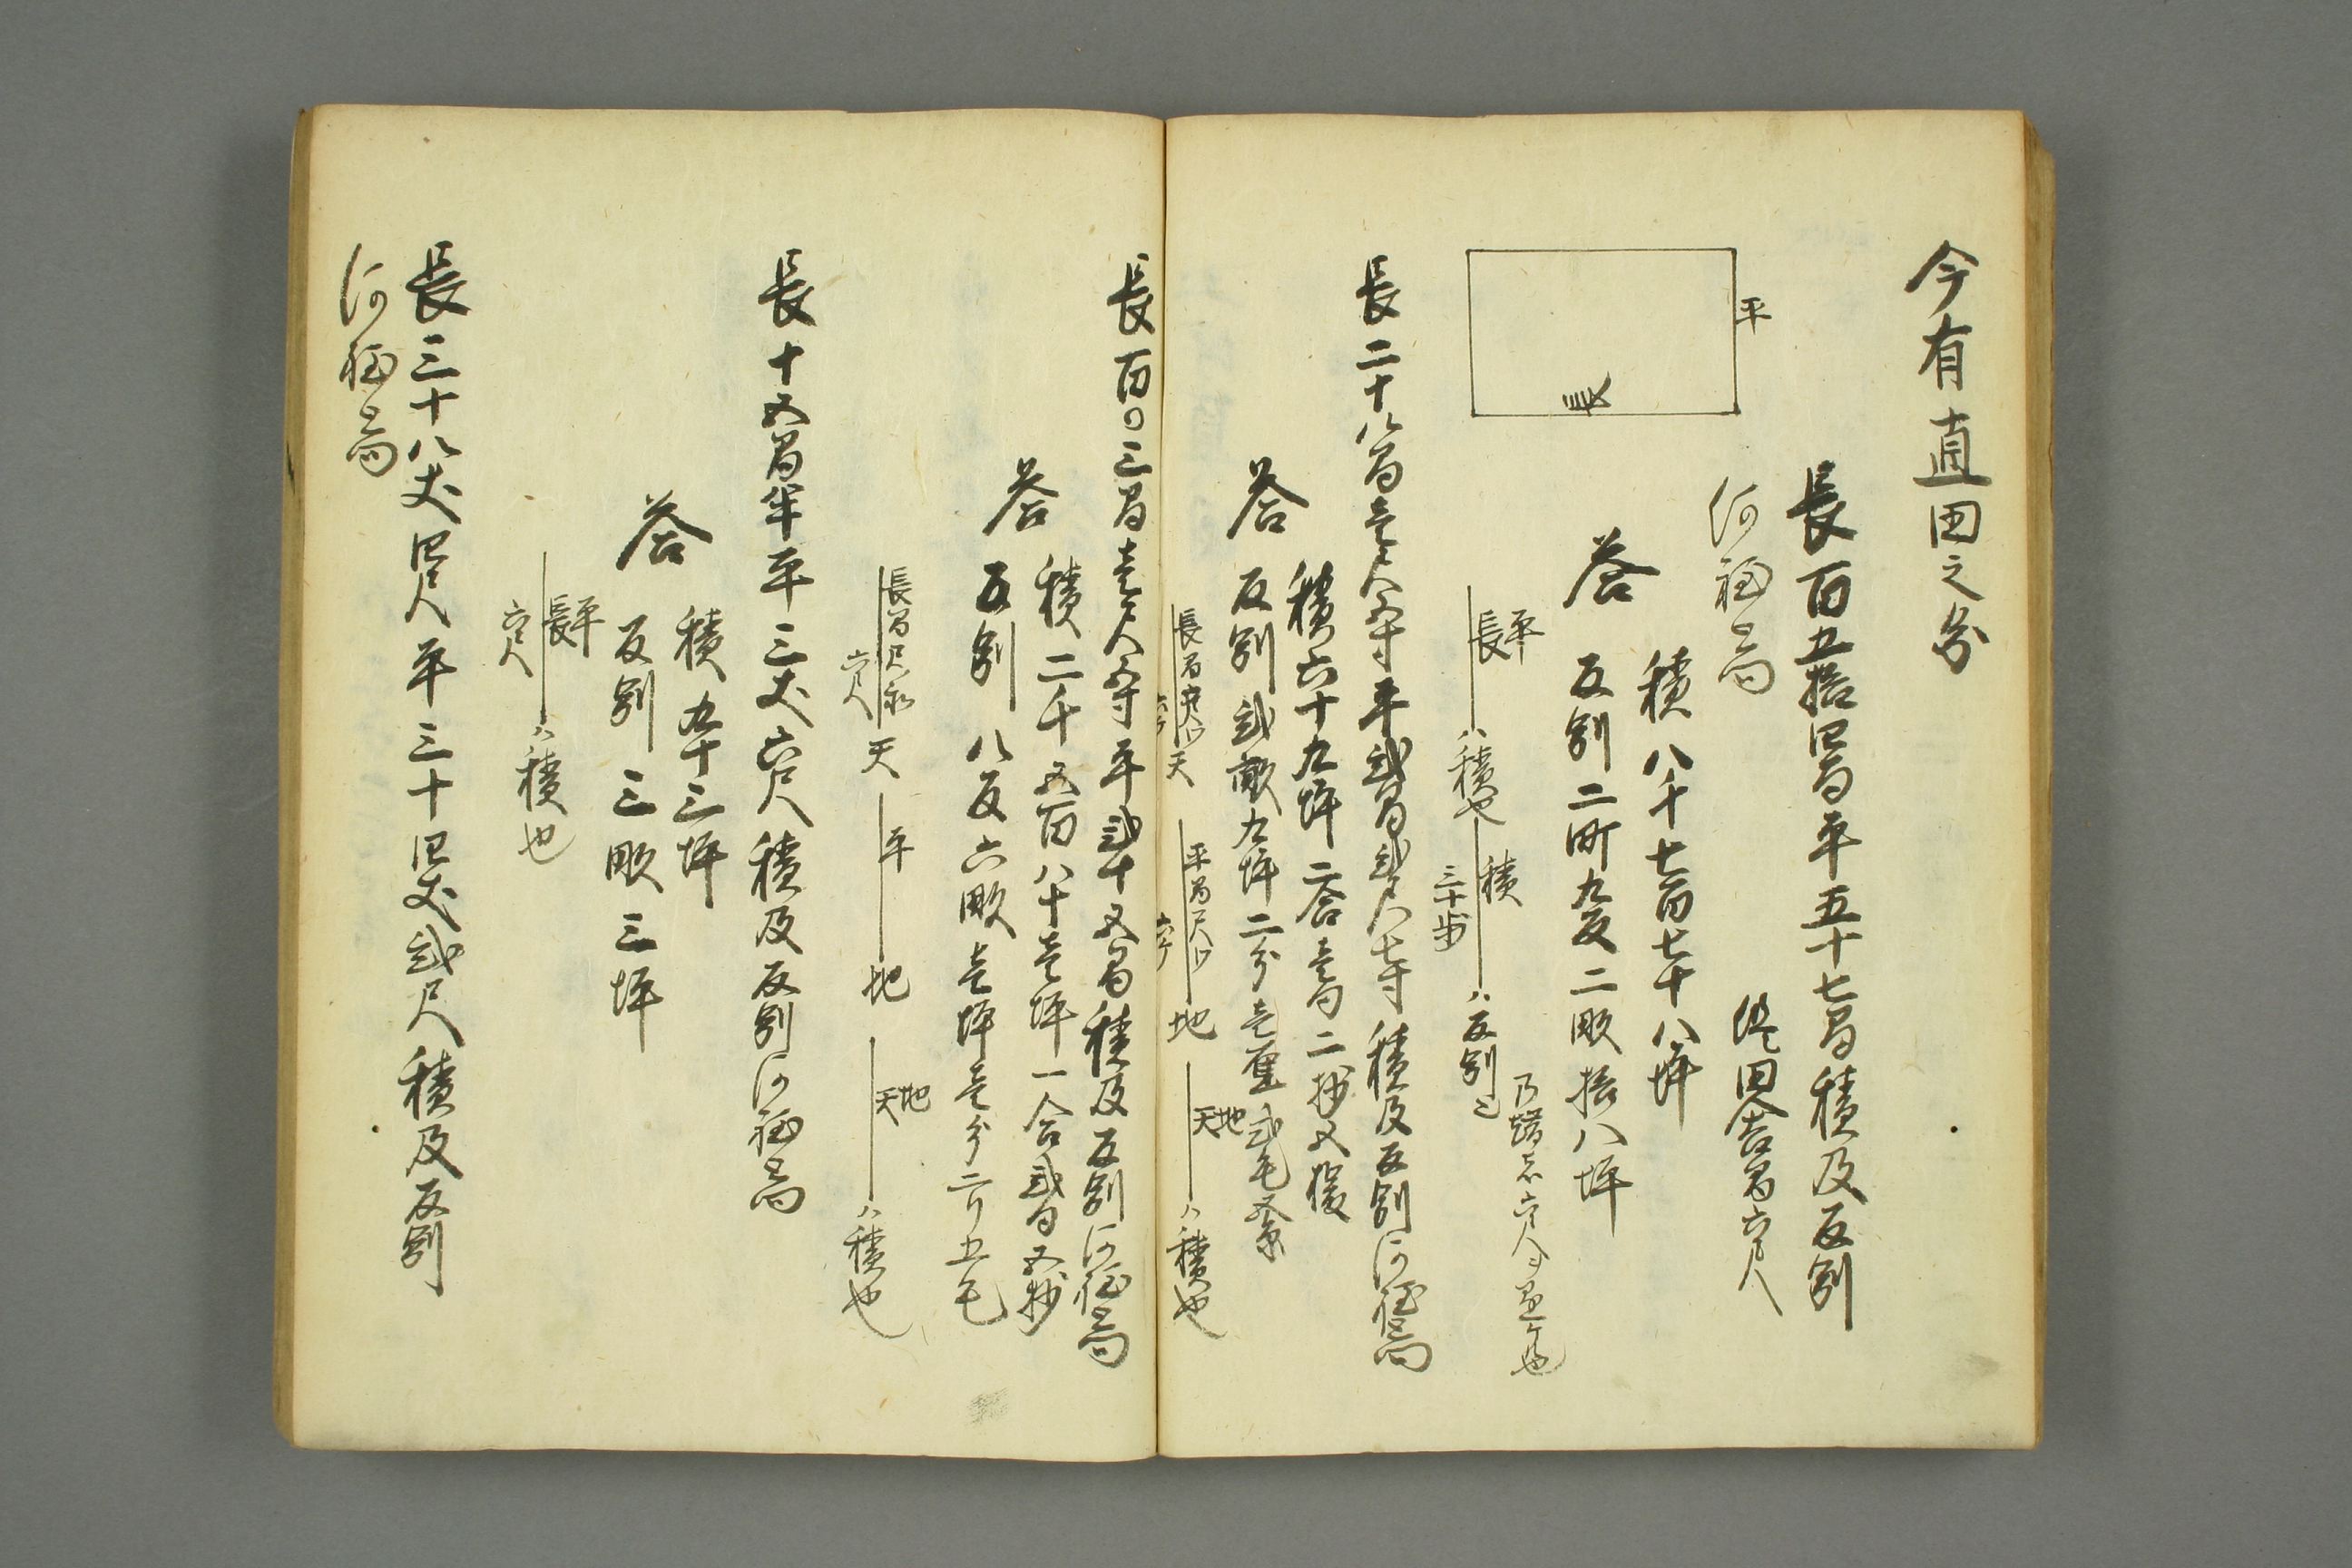 今有直田之分
長百五拾四間平五十七間積及反別
何程ト問 但田舎間六尺
積八千七百七十八坪
答
反別二町九反二畝拾八坪
平
長
平
長
ハ積也
積
三十歩
ハ反別也
長二十八間壱尺五寸平弐間弐尺七寸積及反別何程ト問
積六十九坪二合壱勺二抄五
答
反別弐畝九坪二分壱厘弐毛五糸
長間尺 天
平間尺 地
地
天
ハ積也
長百〇三間壱尺五寸平弐十五間積及反別何程ト問
積二千五百八十壱坪一合弐勺五抄
答
反別八反六畝壱坪壱分二リ五毛
長間尺 天
六尺
平 地
地
天
ハ積也
長十五間半平三丈六尺積及反別何程ト問
積九十三坪
答
反別三畝三坪
平
長
六尺
ハ積也
長三十八丈四尺平三十四丈弐尺積及反別
何程ト問